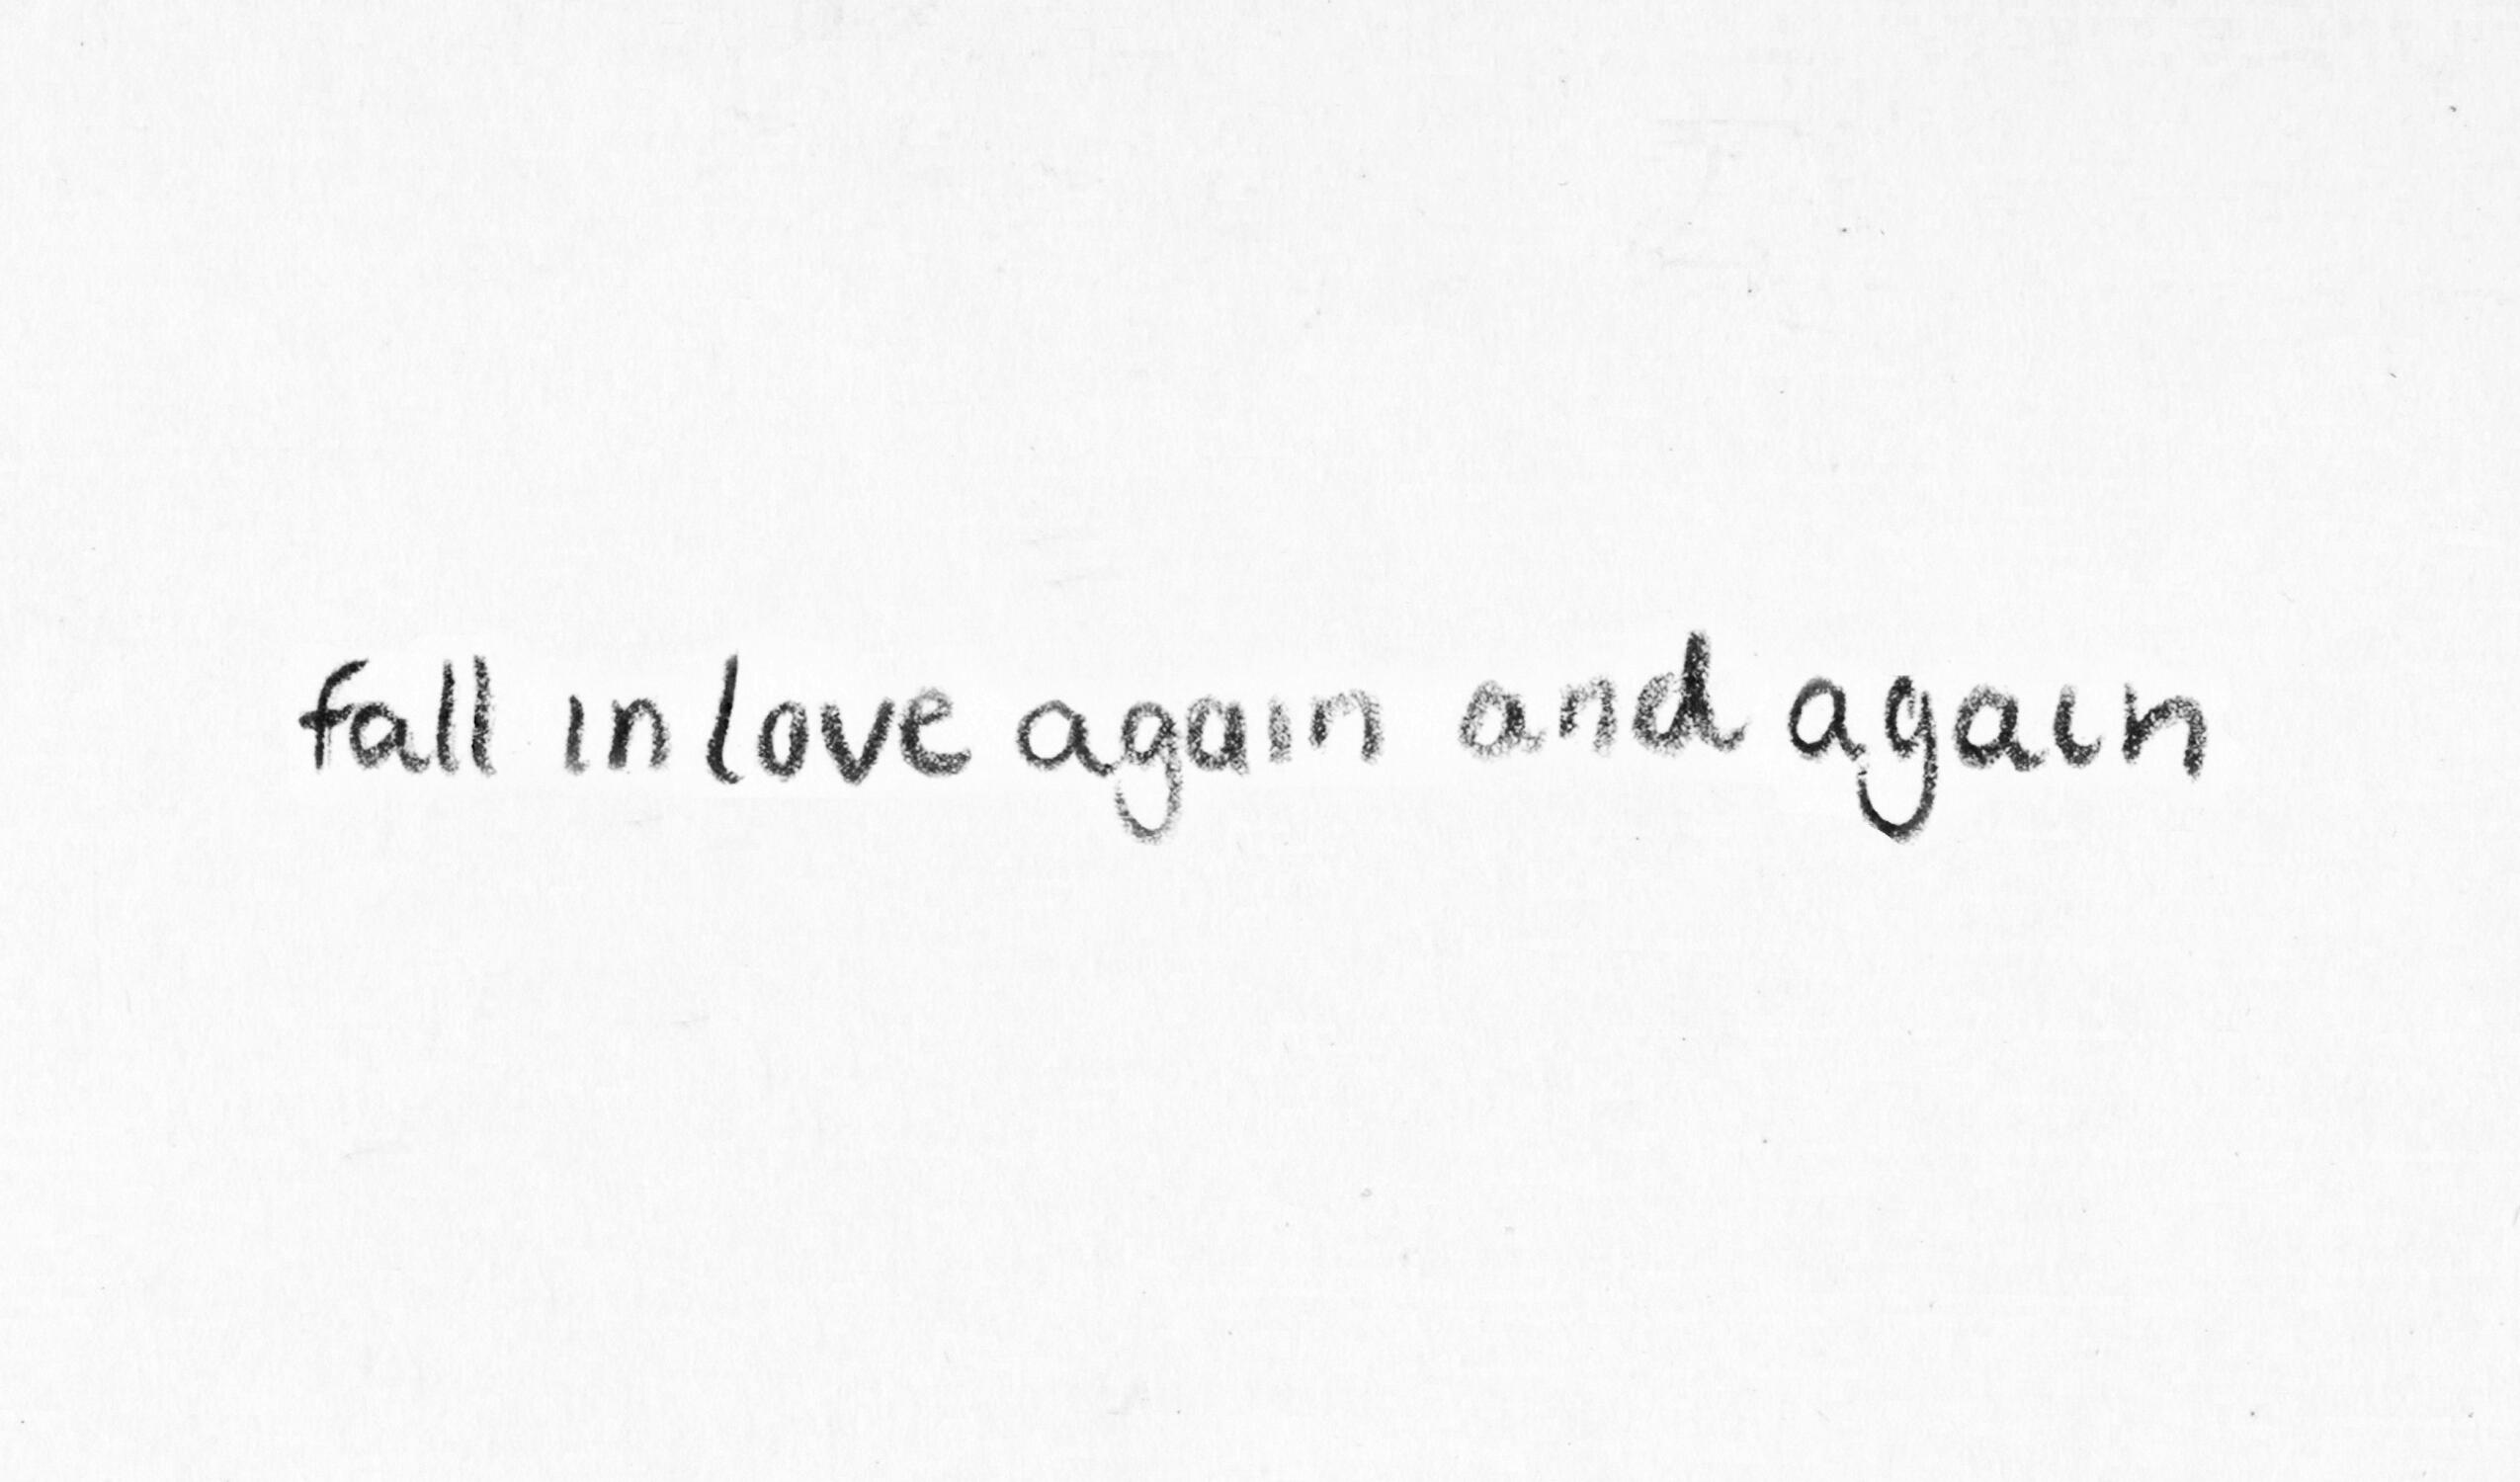 fall in love again and again